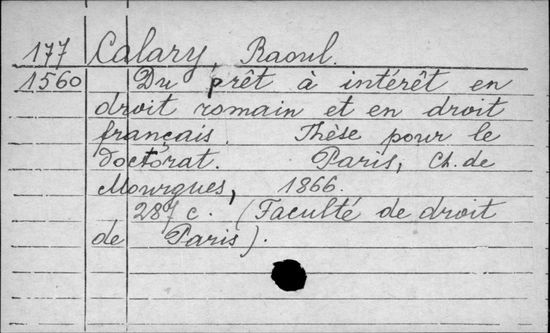 177 Calary, Raoul.
1560 Du prêt à intérêt en
droit romain et en droit
français. Thèse pour le
doctorat. Paris, Ch. de
Mourgues, 1866.
287 c. (Faculté de droit
de Paris).